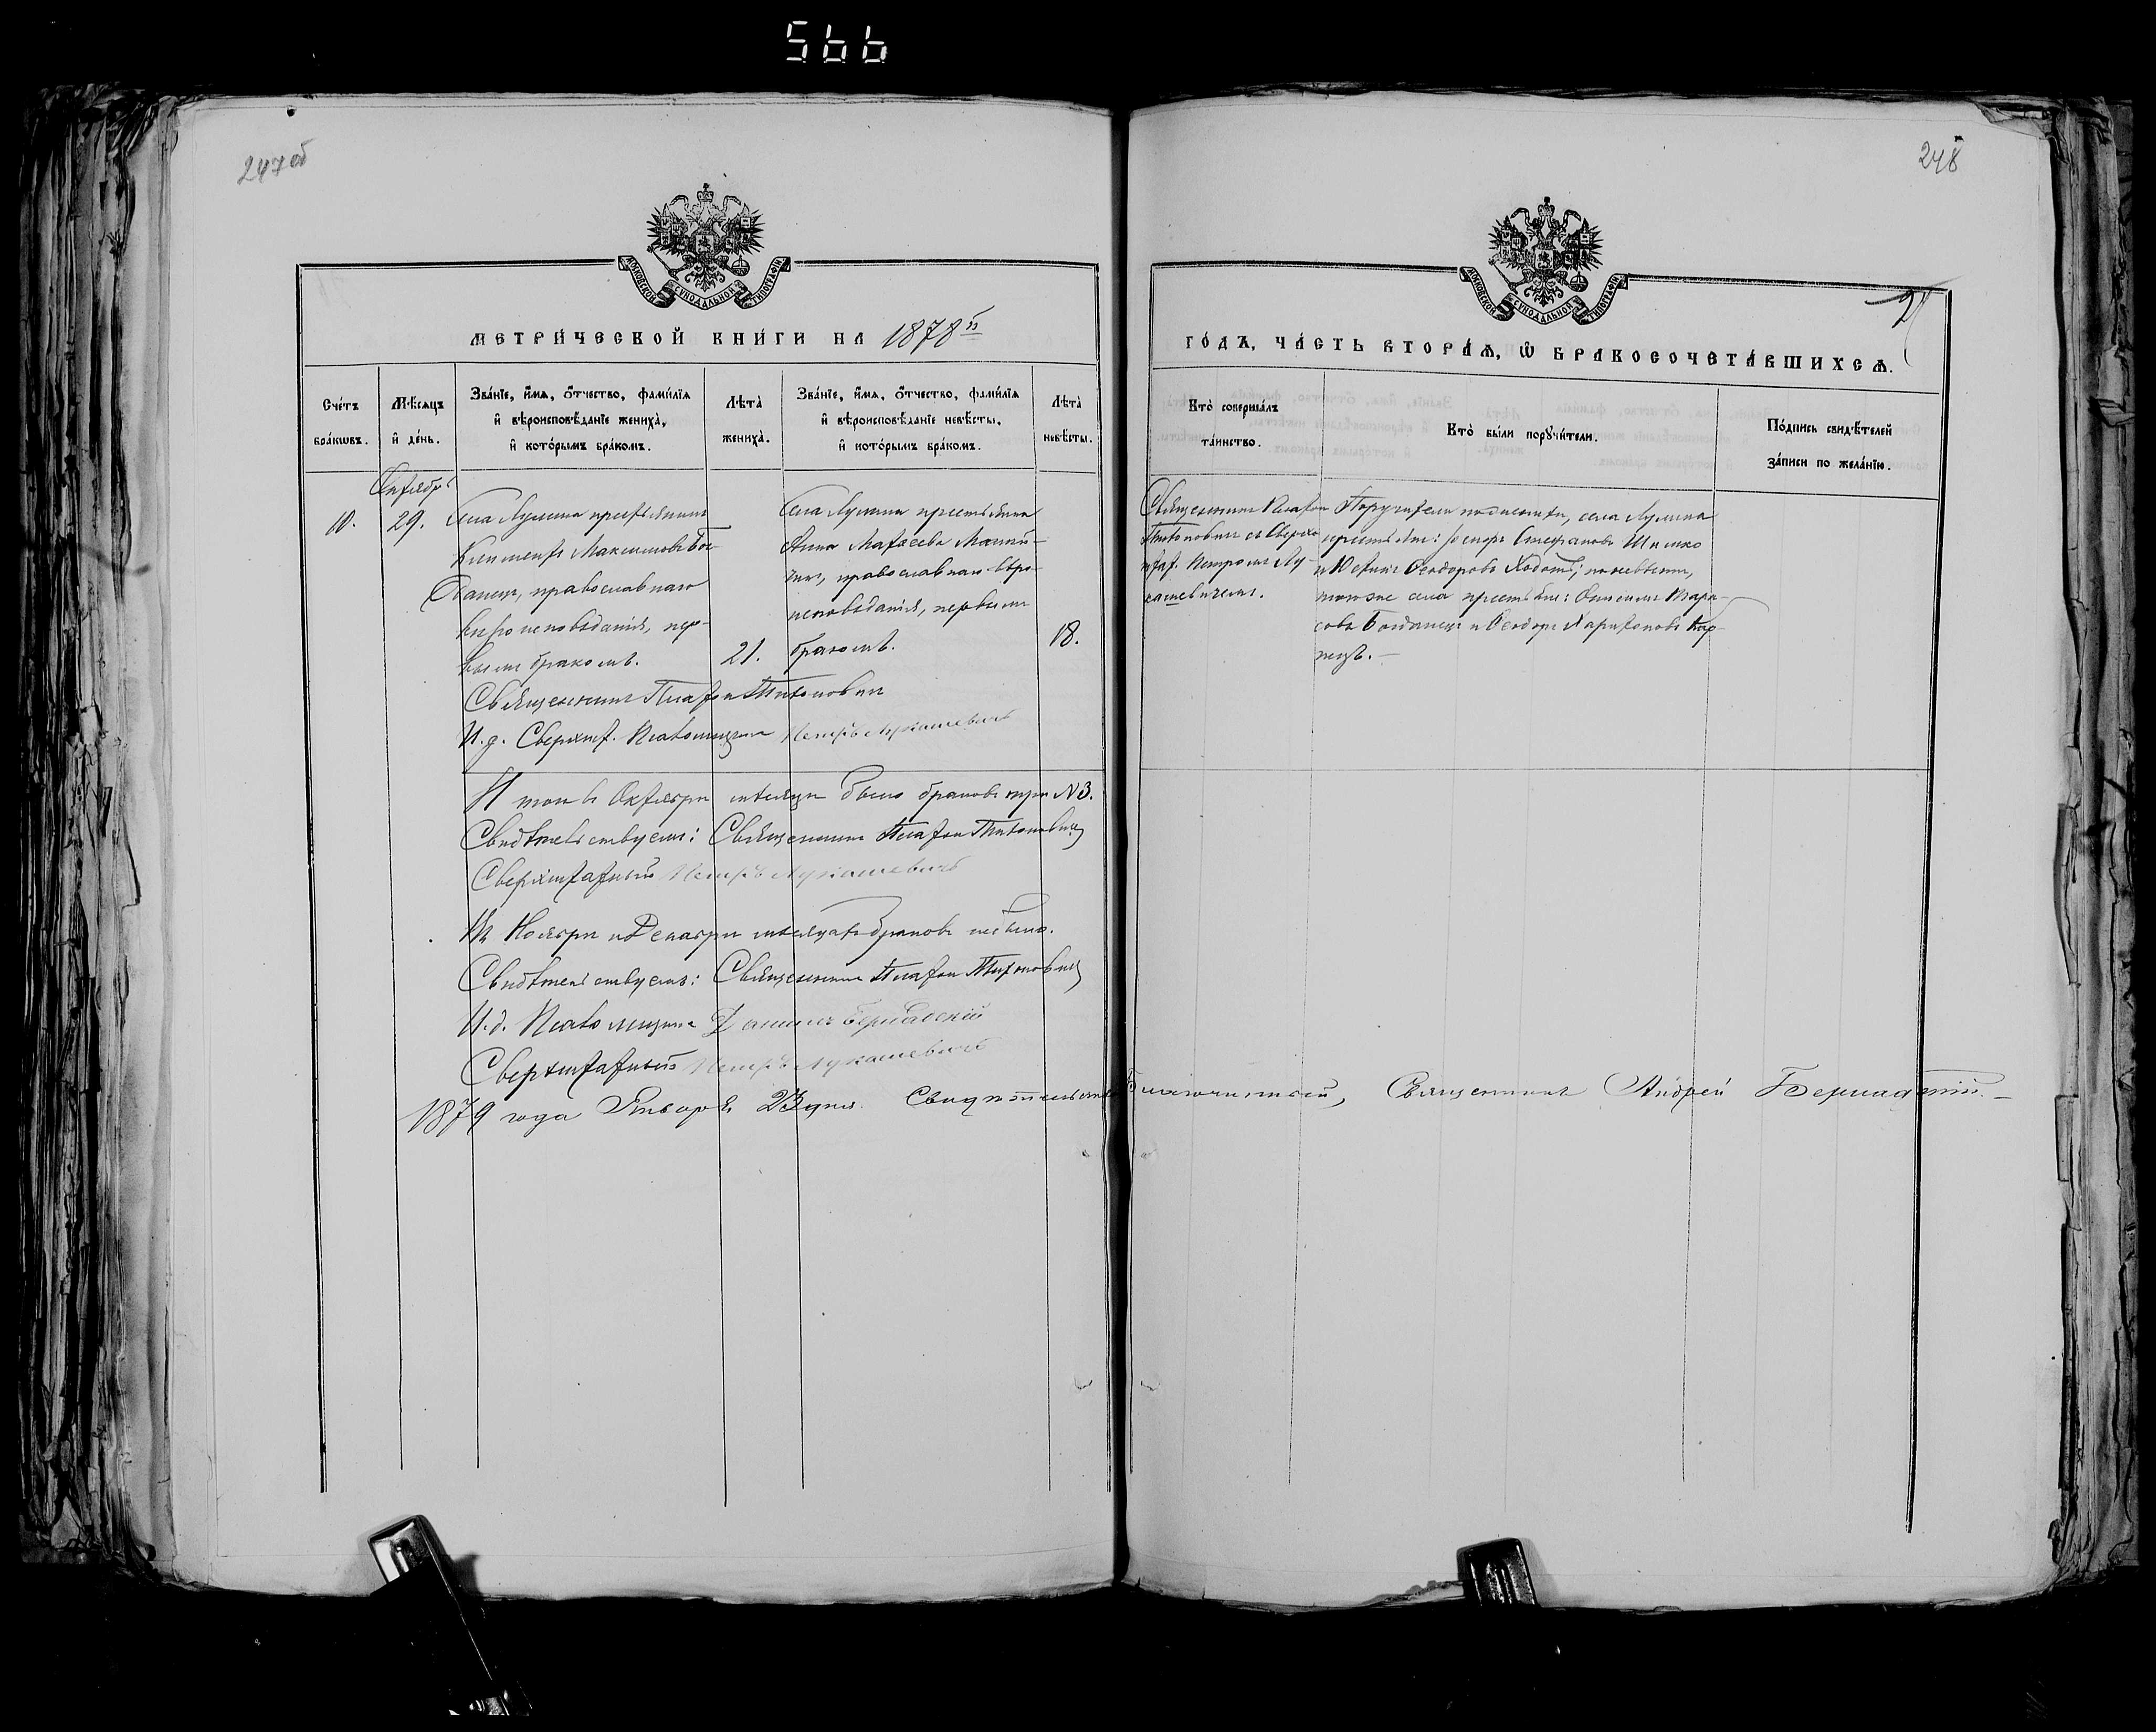 566
247об
248
МОСКОВСКОЙ СУНОДАЛЬНОЙ ТИПОГРАФІИ
МОСКОВСКОЙ СУНОДАЛЬНОЙ ТИПОГРАФІИ
МЕТРИ́ЧЕСКОЙ КНИ́ГИ НА 1878й
ГО́ДЪ, ЧА́СТЬ ВТОРА́Я, Ѡ БРАКОСОЧЕТА́ВШИХСЯ.
Сче́тъ бра́кѡвъ.
Мѣ́сяцъ и де́нь.
Зва́нїе, и́мя, о́тчество, фами́лїя и вѣроисповѣ́данїе жениха̀, и кото́рымъ бра́комъ.
Лѣта̀ жениха̀.
Зва́нїе, и́мя, о́тчество, фами́лїя и вѣроисповѣ́данїе невѣ́сты, и кото́рымъ бра́комъ.
Лѣта̀ невѣ́сты.
Кто̀ соверша́лъ та́инство.
Кто̀ бы́ли порꙋчи́тели.
По́дпись свидѣ́телей за́писи по жела́нїю.
Октябрь
10.
29.
Села Лулина крестьянинъ
Климентъ Максимовъ Бог
данецъ, православнаго
вѣроисповѣданія, пер-
вымъ бракомъ.
21.
Села Лулина крестьянка
Анна Матѳеева
православнаго вѣро-
исповѣданія, первымъ
бракомъ.
18.
Священникъ Платон
Тихоновичъ съ Сверх
штат. Петромъ Лу-
кашевичемъ.
Поручители по женихѣ, села Лулина
крестьяне: Стефановъ Шишко
и Ѳеодоровъ Ходотъ; по невѣстѣ,
тогоже села крестьяне: Тара-
совъ Богданецъ и Ѳеодоръ Харитоновъ Кар-
пецъ.-
Священникъ Платон Тихоновичъ
И.д. Сверхшт. Псаломщика Петръ Лукашевичъ
Итого въ Октябрѣ мѣсяцѣ было браковъ три №3.
Свидѣтельствуемъ: Священникъ Платон Тихоновичъ
Сверхштатный Петръ Лукашевичъ
Въ Ноябрѣ и Декабрѣ мѣсяцахъ браковъ не было.
Свидѣтельствуемъ: Священникъ Платон Тихоновичъ
И.д. Псаломщика Даниилъ
Сверхштатный Петръ Лукашевичъ
1879 года Января 23 дня. Свидѣтельств Благочинный, Священникъ Андрей